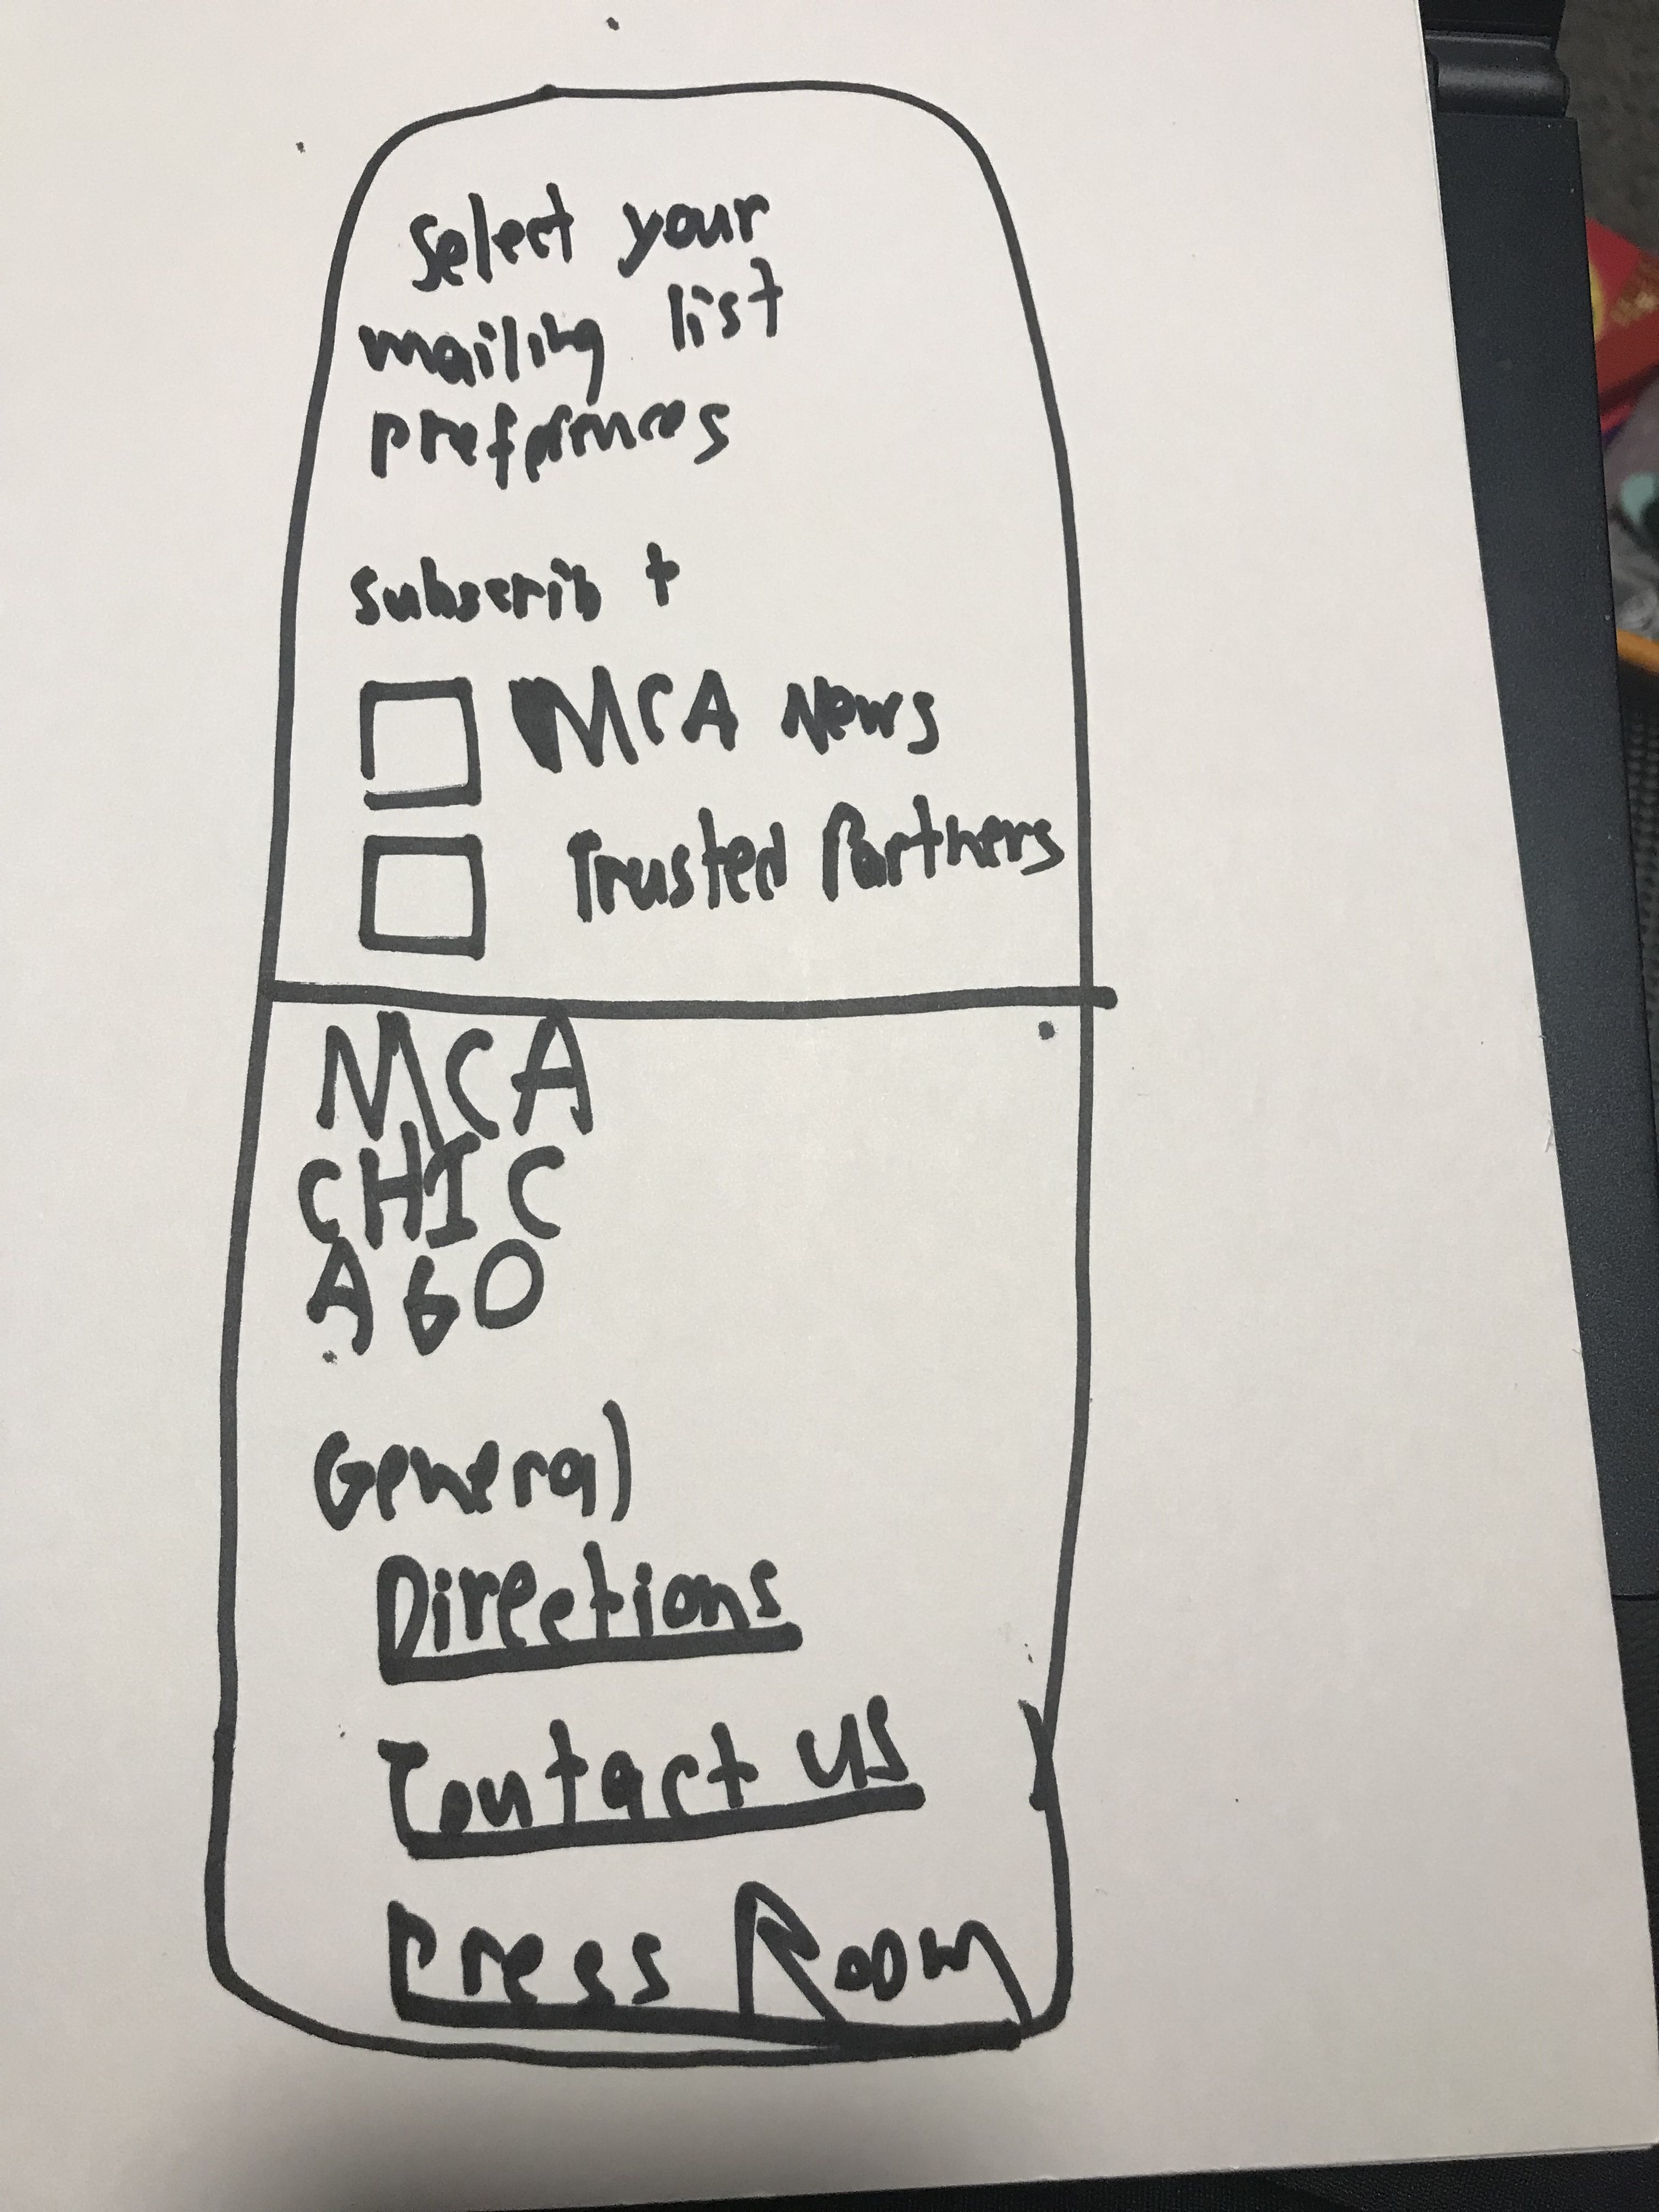 Select your
mailing list
preferences
Subscrib +
MCA News
Trusted Partners
MCA
CHIC
AGO
General
Directions
Contact us
Press Room